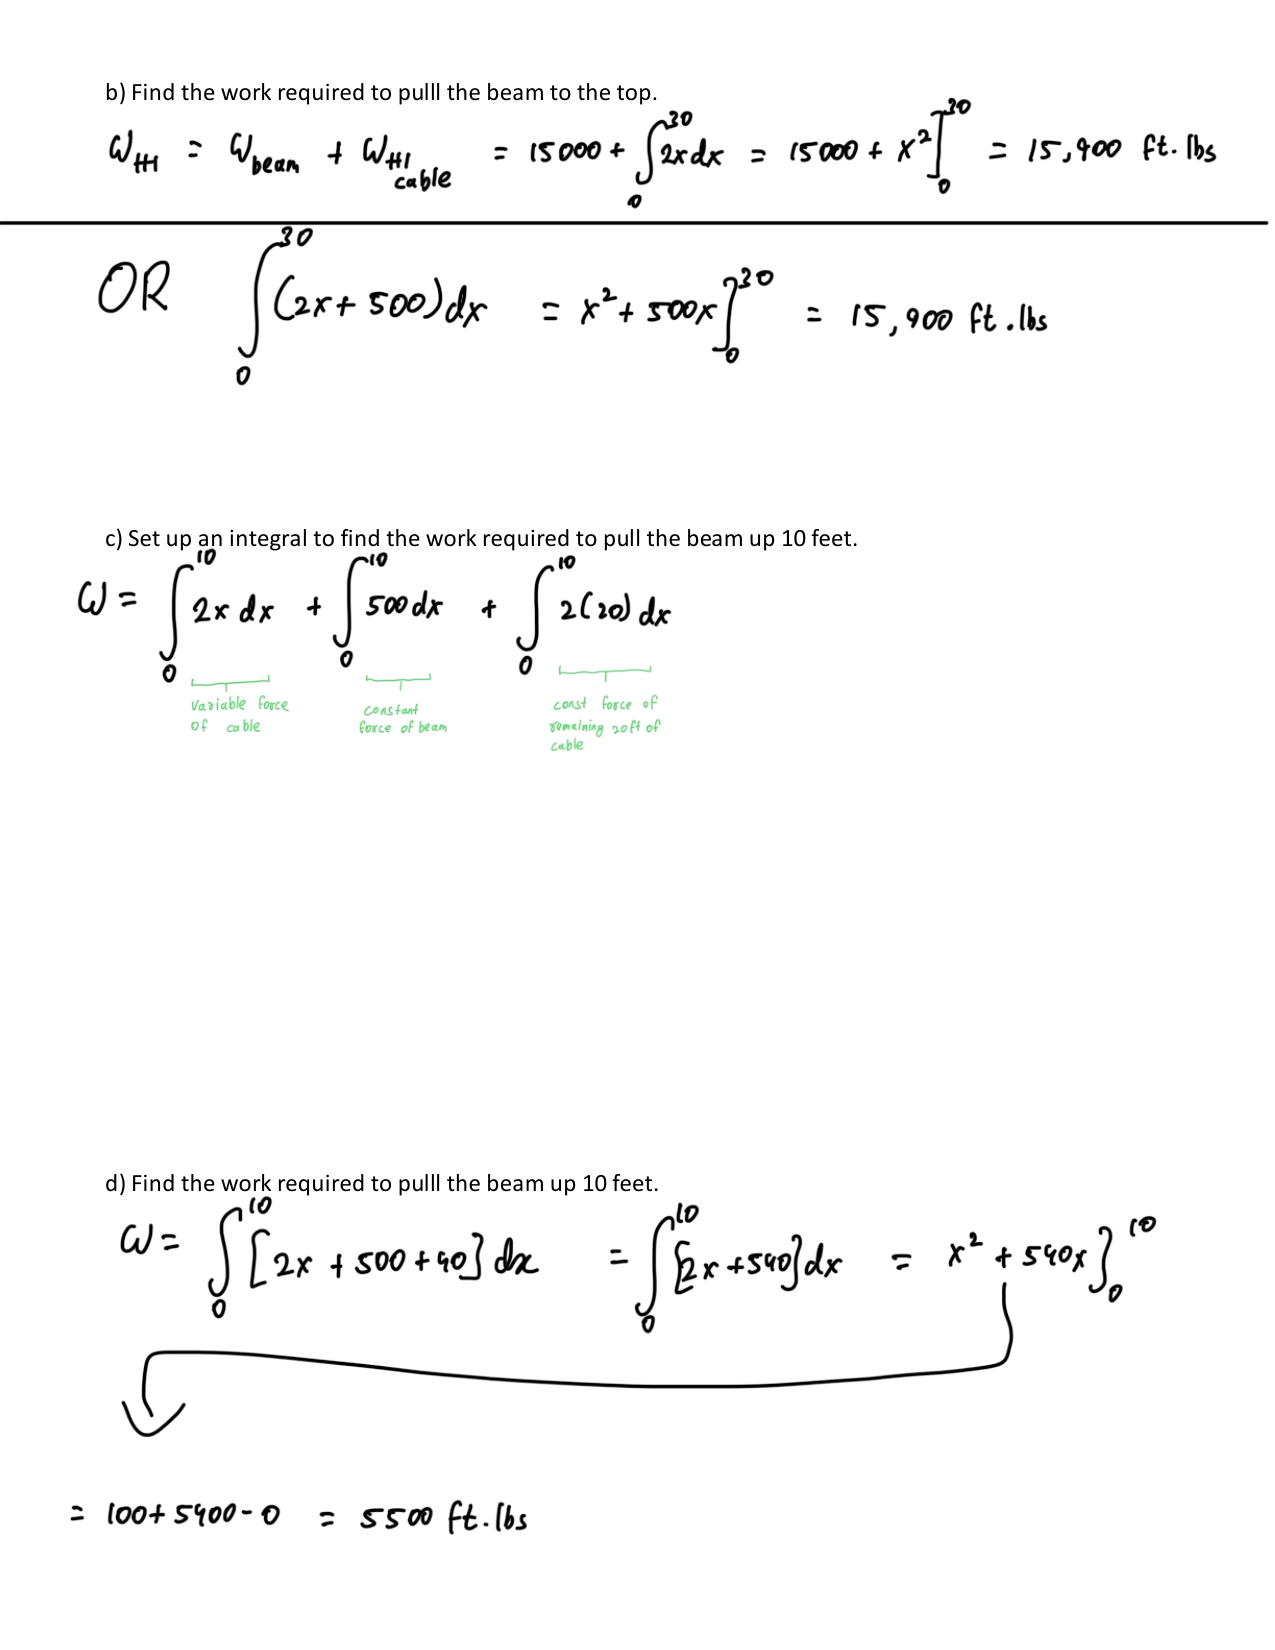 b) Find the work required to pulll the beam to the top.
W_ttl = W_beam + W_ttl cable = 15000 + ∫₀³⁰ 2x dx = 15000 + x²]₀³⁰ = 15,900 ft.lbs
OR ∫₀³⁰ (2x + 500) dx = x² + 500x]₀³⁰ = 15,900 ft.lbs
c) Set up an integral to find the work required to pull the beam up 10 feet.
W = ∫₀¹⁰ 2x dx + ∫₀¹⁰ 500 dx + ∫₀¹⁰ 2(20) dx
variable force of cable
constant force of beam
const force of remaining 20ft of cable
d) Find the work required to pulll the beam up 10 feet.
W = ∫₀¹⁰ [2x + 500 + 40] dx = ∫₀¹⁰ [2x + 540] dx = x² + 540x]₀¹⁰
= 100 + 5400 - 0 = 5500 ft.lbs